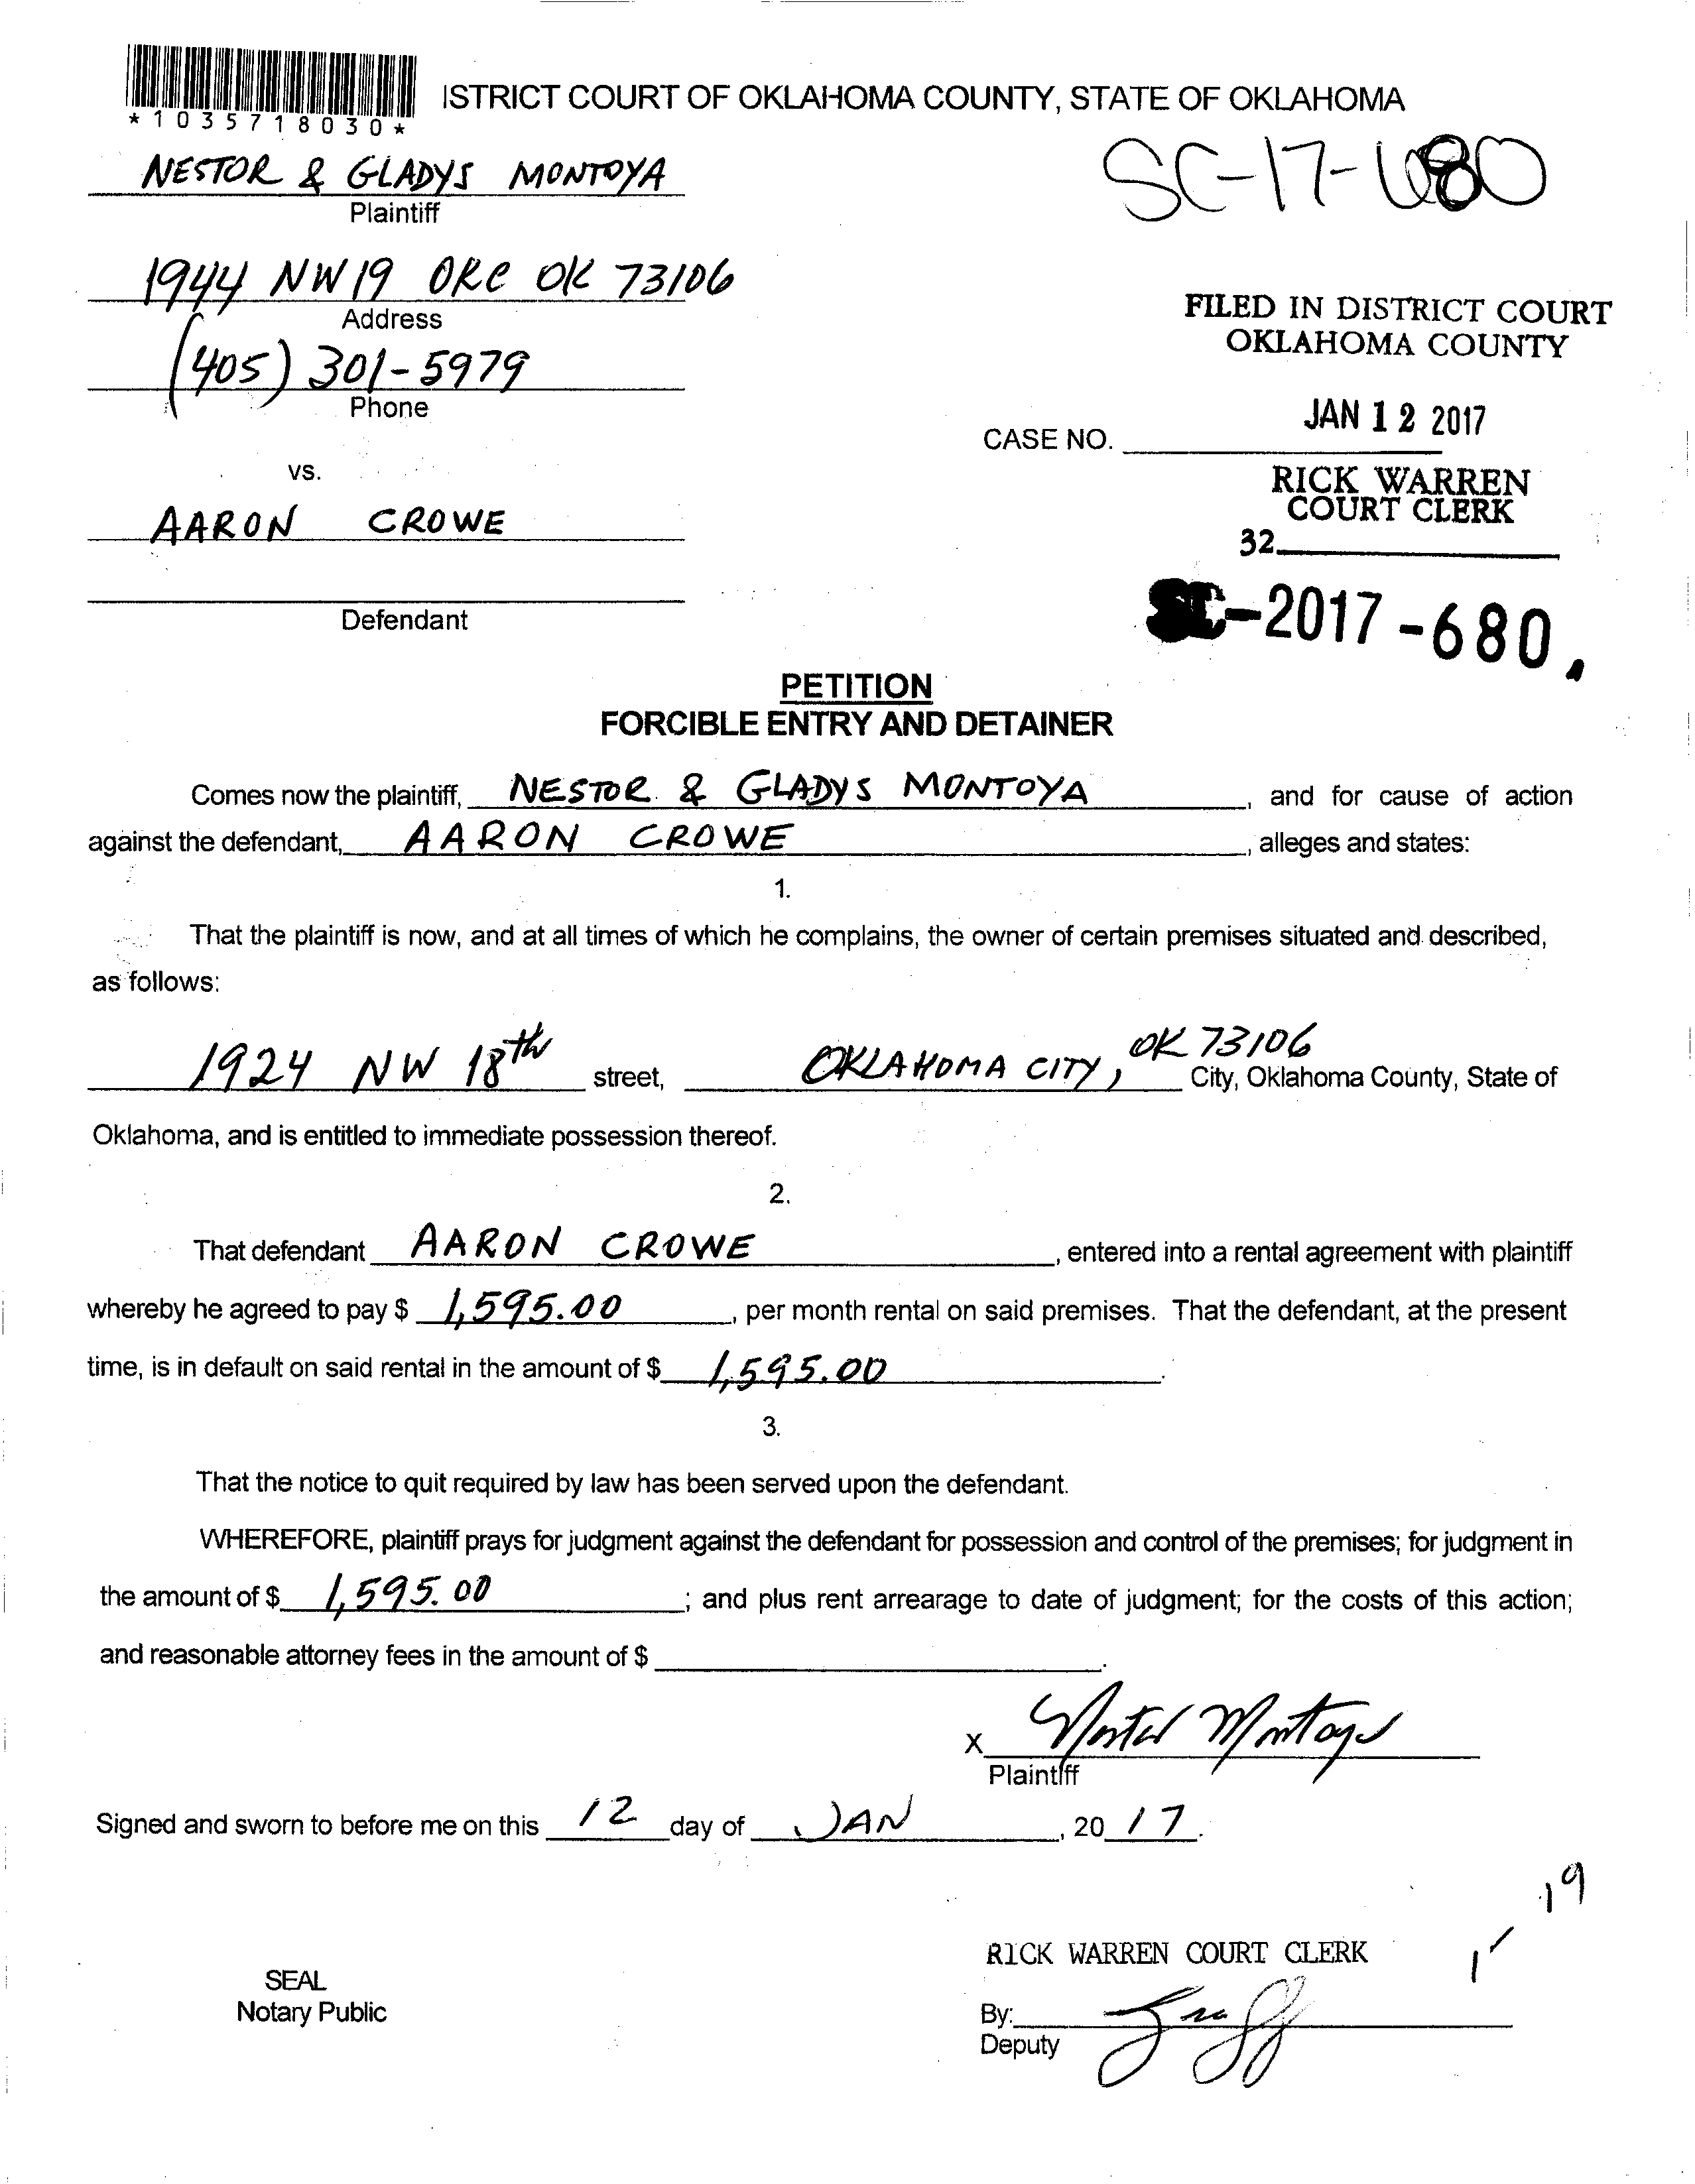 *1035718030*
ISTRICT COURT OF OKLAHOMA COUNTY, STATE OF OKLAHOMA
NESTOR & GLADYS MONTOYA
Plaintiff
SC-17-680
1944 NW 19 OKC OK 73106
Address
(405) 301-5979
Phone
FILED IN DISTRICT COURT
OKLAHOMA COUNTY
JAN 12 2017
CASE NO.
RICK WARREN
COURT CLERK
32
vs.
AARON CROWE
Defendant
SC-2017-680
PETITION
FORCIBLE ENTRY AND DETAINER
Comes now the plaintiff, NESTOR & GLADYS MONTOYA, and for cause of action
against the defendant, AARON CROWE, alleges and states:
1.
That the plaintiff is now, and at all times of which he complains, the owner of certain premises situated and described,
as follows:
1924 NW 18th street, OKLAHOMA CITY, OK 73106 City, Oklahoma County, State of
Oklahoma, and is entitled to immediate possession thereof.
2.
That defendant AARON CROWE, entered into a rental agreement with plaintiff
whereby he agreed to pay $ 1,595.00, per month rental on said premises. That the defendant, at the present
time, is in default on said rental in the amount of $ 1,595.00.
3.
That the notice to quit required by law has been served upon the defendant.
WHEREFORE, plaintiff prays for judgment against the defendant for possession and control of the premises; for judgment in
the amount of $ 1,595.00; and plus rent arrearage to date of judgment; for the costs of this action;
and reasonable attorney fees in the amount of $ .
x Nestor Montoya
Plaintiff
Signed and sworn to before me on this 12 day of JAN, 20 17.
19
RICK WARREN COURT CLERK
SEAL
Notary Public
By:
Deputy